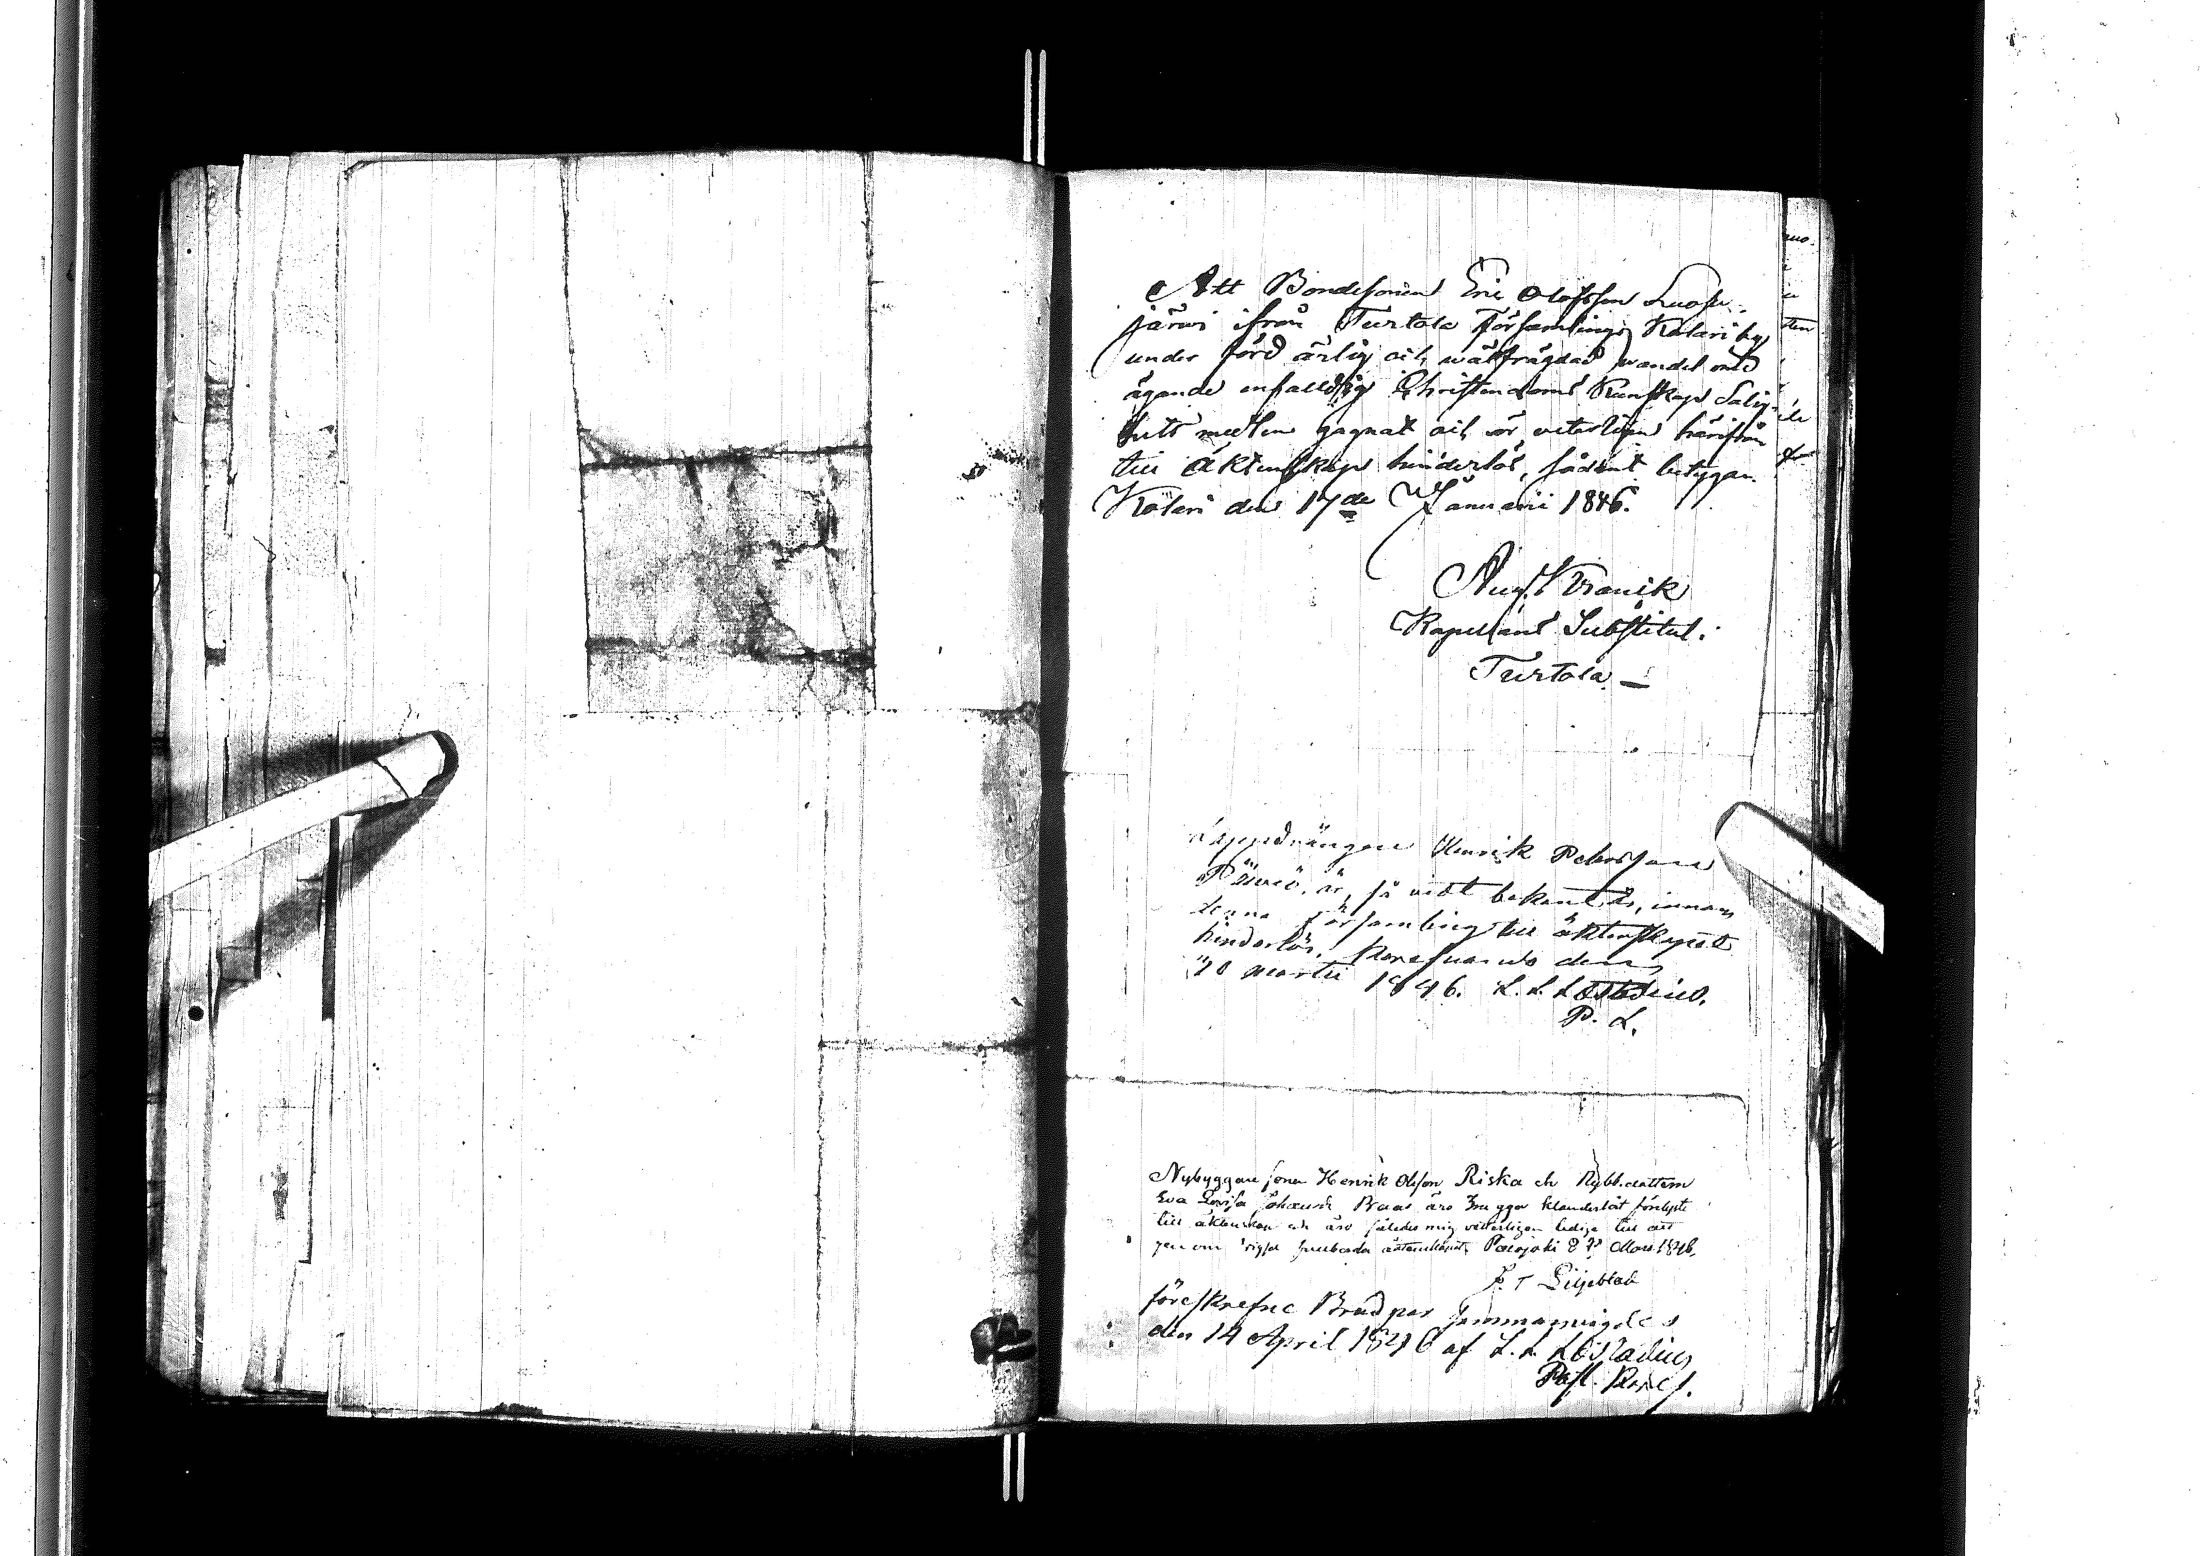 Att Bondesonen Eric Olofsson Luosu-
järwi ifrån Turtola Församlings Kolari by
under förd ärlig och wälfrägdad wandel med
ägande enfalldig Christendoms Kunskap Salig-
hets medlen gagnat och är veterligen härifrån
till Äktenskap hinderlös, sådant betygar.
Kolari den 17de Januarii 1846.
Aug. Franik
Kapellans Substitut.
Turtola
Lappdrängen Henrik Pehrsson
är, så vidt bekant är, innom
denna församling till äktenskapet
hinderlös. Karesuando den
20 Martii 1846. L. L. Læstadius.
P. L.
Nybyggare sonen Henrik Olsson Riska och Nybb.dottern
Eva Lovisa Johansd. äro 3ne ggr klanderlöst förelyste
till äktenskap och äro således mig vetterligen lediga till att
genom vigsel fullborda äktenskapet, Parojoki 8 Mars 1846.
Liljeblad
föreskrefne Brudpar sammanvigdes
den 14 April 1846 af L. L. Læstadius
Past. Kares.